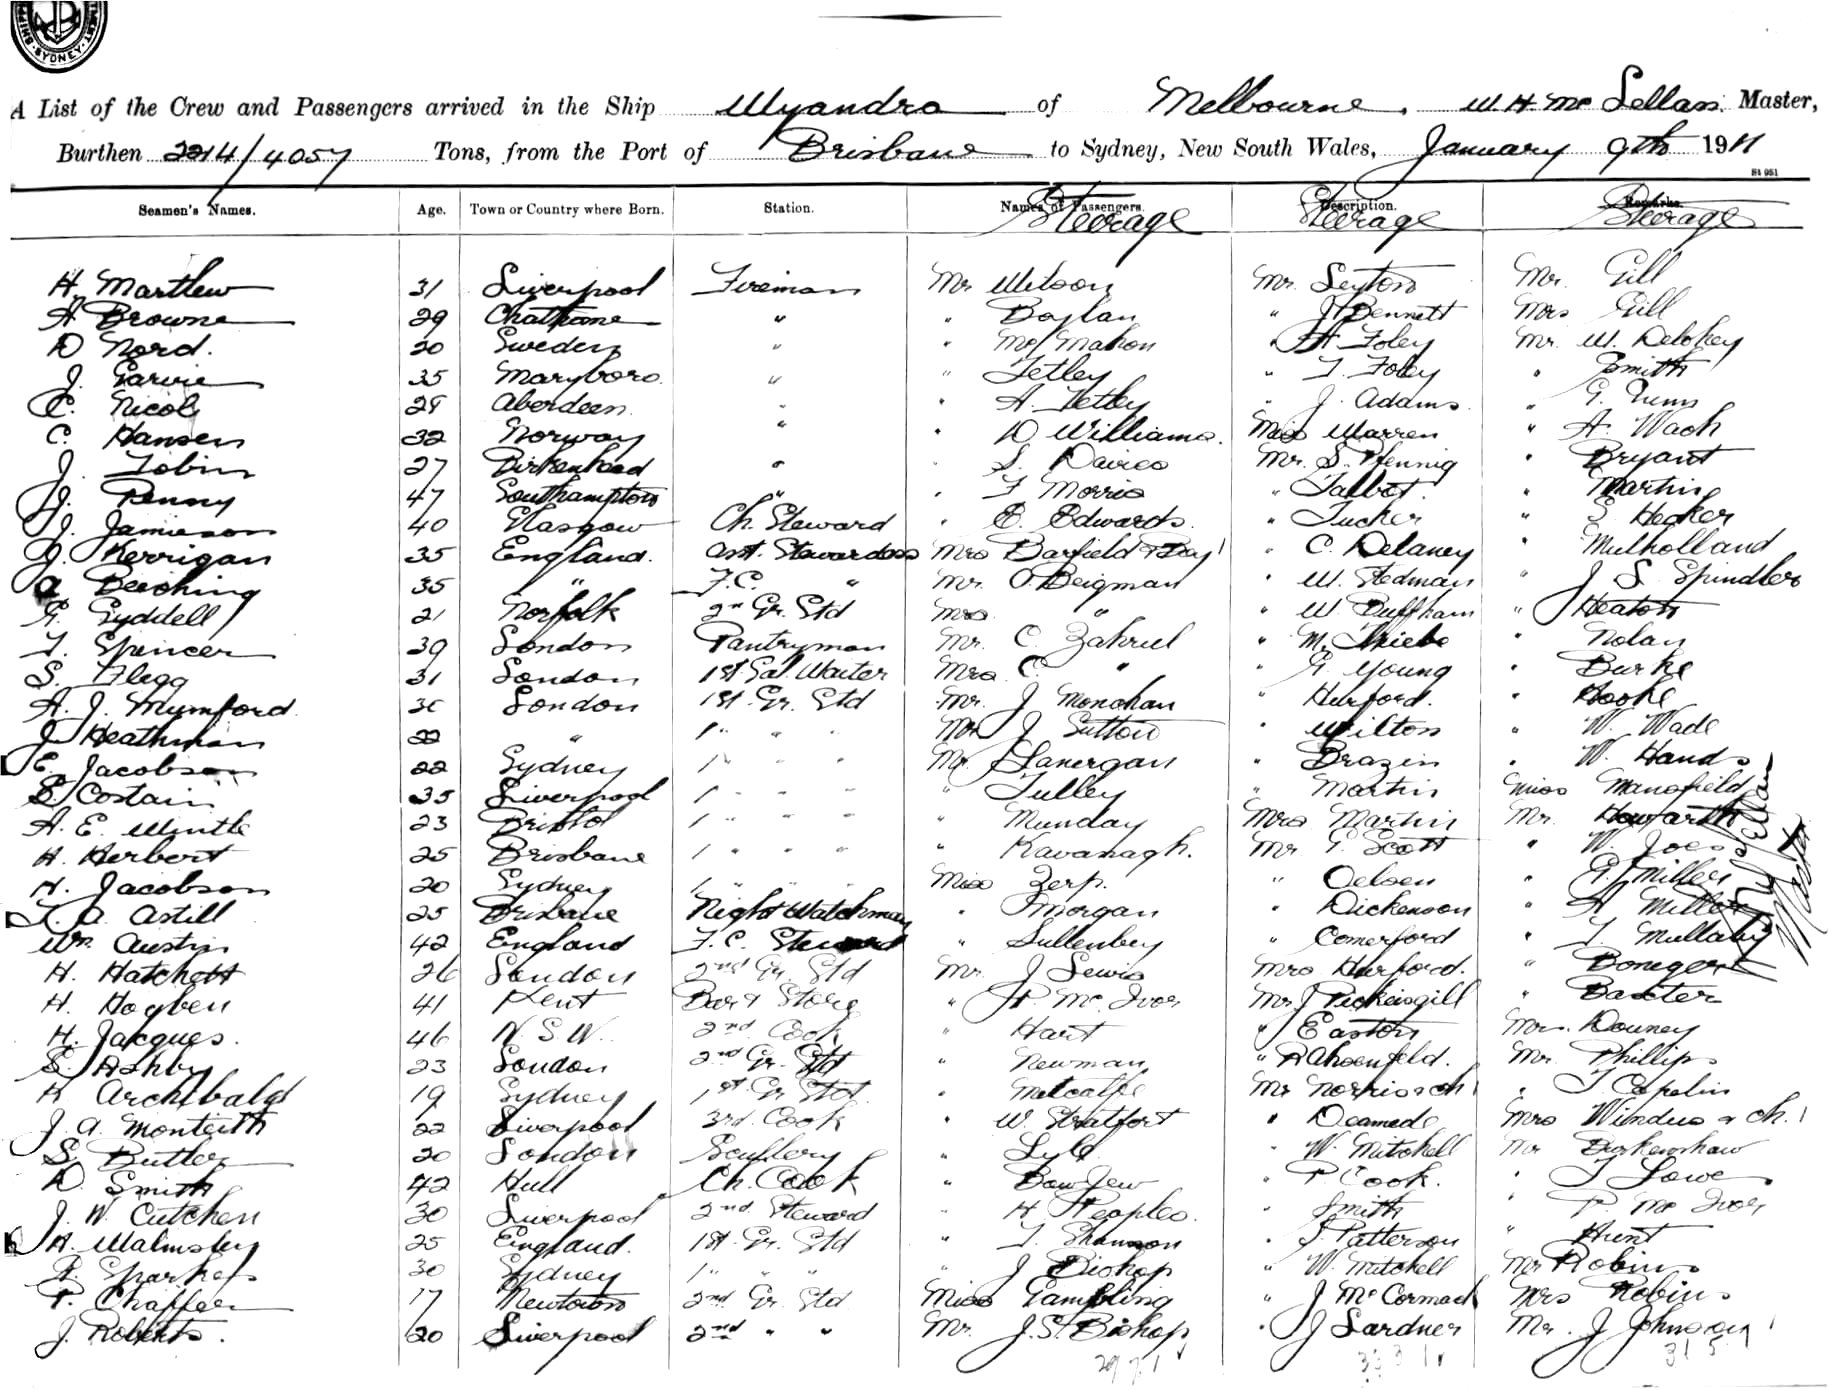 SYDNEY
A List of the Crew and Passengers arrived in the Ship Wyandra of Melbourne, W. H. Mc Lellan Master,
Burthen 2214/4057 Tons, from the Port of Brisbane to Sydney, New South Wales, January 9th 1911
St 951
Seamen's Names. Age. Town or Country where Born. Station. Names of Passengers. Description. Remarks.
Steerage Steerage Steerage
H. Martlew 31 Liverpool Fireman Mr Wilson Mr. Leyton Mr. Gill
A Browne 29 Chathame " " Boylan " J. Bennett Mrs Gill
D Nord. 20 Sweden " " Mc Mahon " A Foley Mr. W. Delokey
J. Garvie 35 Maryboro " " Tetley " T. Foley " Smith
C. Nicol 29 Aberdeen " " A. Tetley " J. Adams " G.
C. Hansen 32 Norway " " D Williams. Miss Warren " A. Wach
J. Tobin 27 Birkenhead " " S. Davies Mr. S. Pfennig " Bryant
J. Penny 47 Southampton " " T Morris " Talbot. " Martin
J. Jamieson 40 Glasgow Ch. Steward " E. Edwards. " Tucker " E Hecker
J. Kerrigan 35 England. asst. Stewardess Mrs Barfield & Bay 1 " C. Delaney " Mulholland
A Beeching 35 " F.C. " Mr. O. Beigman " W. Stedman " J S. Spindler
G. Lyddell 21 Norfolk 2nd Gr. Std Mrs " " W Buffham " Heaton
T. Spencer 39 London Pantryman Mr. C. Zahriel " M. Thiebe " Nolan
S. Flegg 31 London 1st Sal. Waiter Mrs C. " " G Young " Burke
A. J. Mumford 30 London 1st. Gr. Std Mr. J Monohan " Hurford. " Hooke
J Heathman 22 " 1 " " " J Sutton " Wilton " W. Wade
E. Jacobson 22 Sydney 1 " " " Mr. Lanergan " Brazin " W. Hands
E. Costain 35 Liverpool 1 " " " " Tulley " Martin Miss Mansfield
A. E. Wintle 23 Bristol 1 " " " " Munday Mrs Martin Mr. Howarth
H. Herbert 25 Brisbane 1 " " " " Kavanagh. Mr G Scott " W. Joes
H. Jacobson 20 Sydney 1 " " " Miss Zerp. " Oelsen " G. Miller
T. A. Astill 25 Brisbane Night Watchman " Morgan " Dickenson " A Miller
Wm. Austin 42 England F.C. Steward " Sullenbey " Comerford " T. Mullaby
H. Hatchett 26 London 2nd Gr. Std Mr. J Lewis Mrs Hurford. " Boneger
H. Hogben 41 Kent Bar & Store " P. Mc Ivor Mr J Pickersgill " Baxter
H. Jacques. 46 N. S. W. 2nd Cook " Hart " Easton Mrs. Downey
S. Ashby 23 London 2nd Gr. Std " Newman " R Ahoenfeld. Mr. Phillips
R Archibald 19 Sydney 1st Gr. Std. " Metcalfe Mr Norris & ch 1 " T Copelin
J. A. Monteith 22 Liverpool 3rd. Cook " W. Stratfort " Deamede Mrs Windus & Ch. 1
S. Butler 20 London Scullery " Lyle " W. Mitchell Mr Birkenshaw
D. Smith 42 Hull Ch. Cook " Bow Jew " P Cook. " T Lowe
J. W. Cutchen 30 Liverpool 2nd Steward " H Peoples. " Smith " P. Mc Ivor
A. Walmsley 25 England. 1st. Gr. Std " T. Shannon " J Patterson " Hunt
A. Sparkes 30 Sydney 1 " " " " J Bishop " W. Mitchell Mr Robins
P. Chaffer 17 Newtown 2nd Gr. Std Miss Gambling " J Mc Cormack Mrs Robins
J. Roberts. 20 Liverpool 2nd " " Mr. J. S. Bishop " J Lardner Mr. J Johnson
W H Mc Lellan
Master